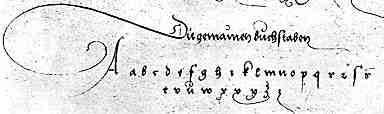 Die gemainen buchstaben
A a b c d e f g h i k l m n o p q r i s ſ r
t v ü w x x y z ȝ